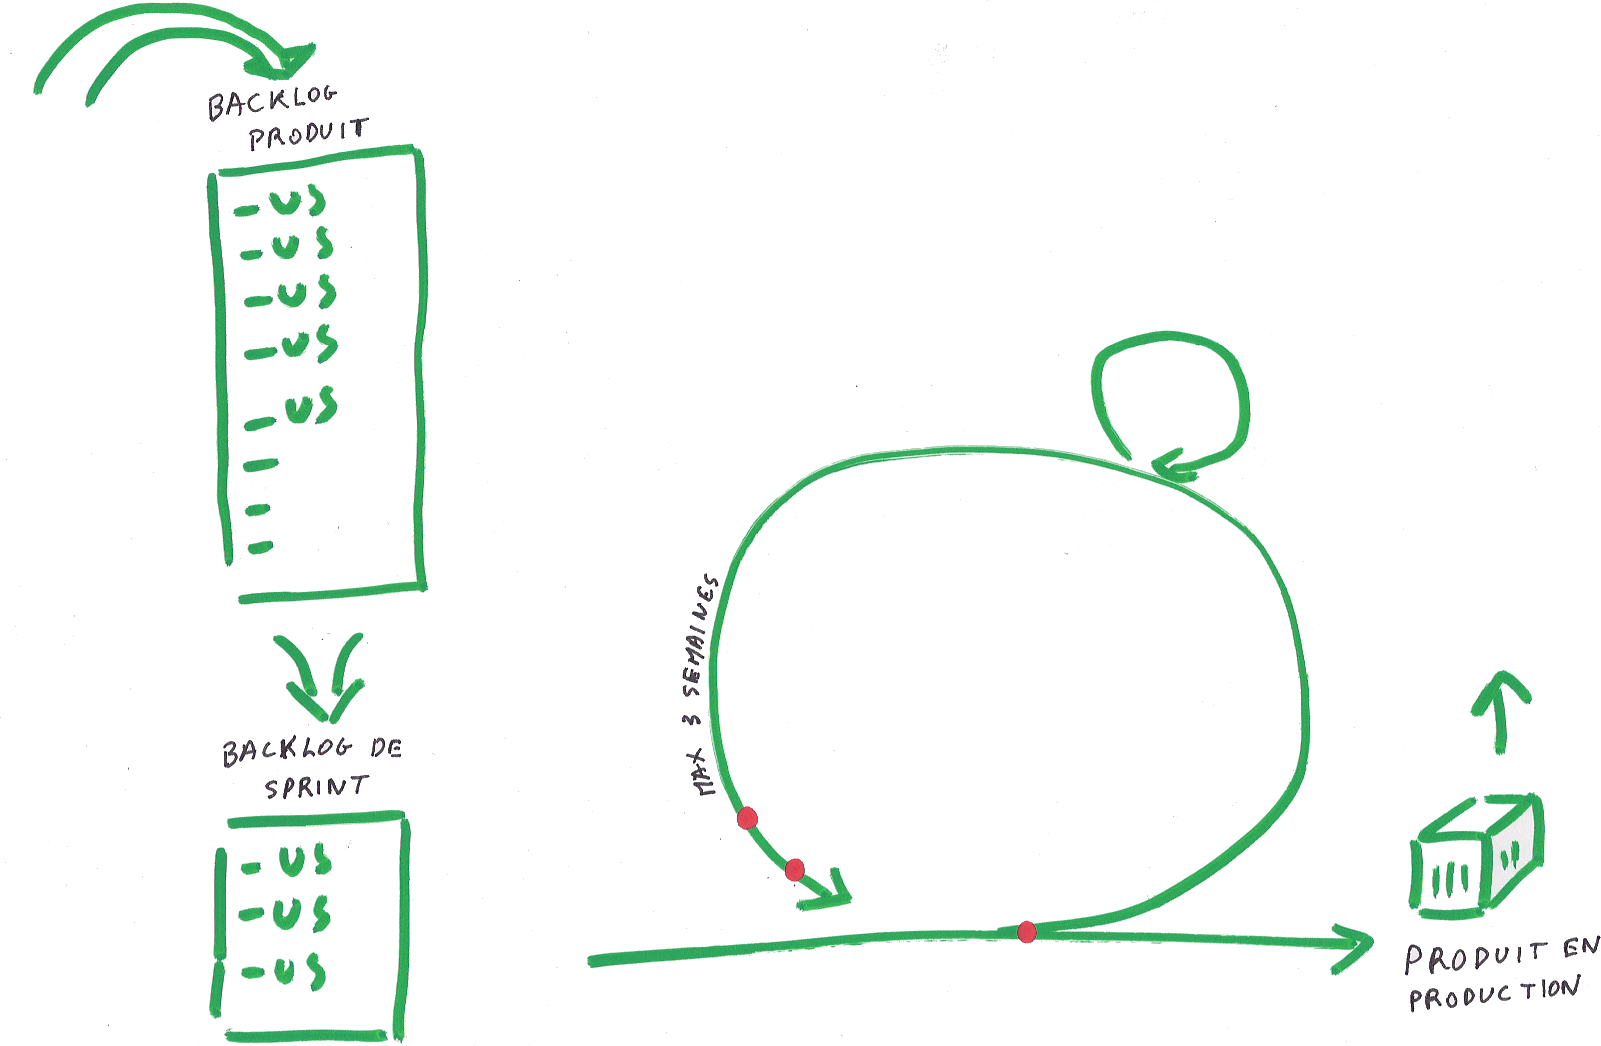 BACKLOG
PRODUIT
- US
- US
- US
- US
- US
-
-
-
BACKLOG DE
SPRINT
- US
- US
- US
MAX 3 SEMAINES
PRODUIT EN
PRODUCTION